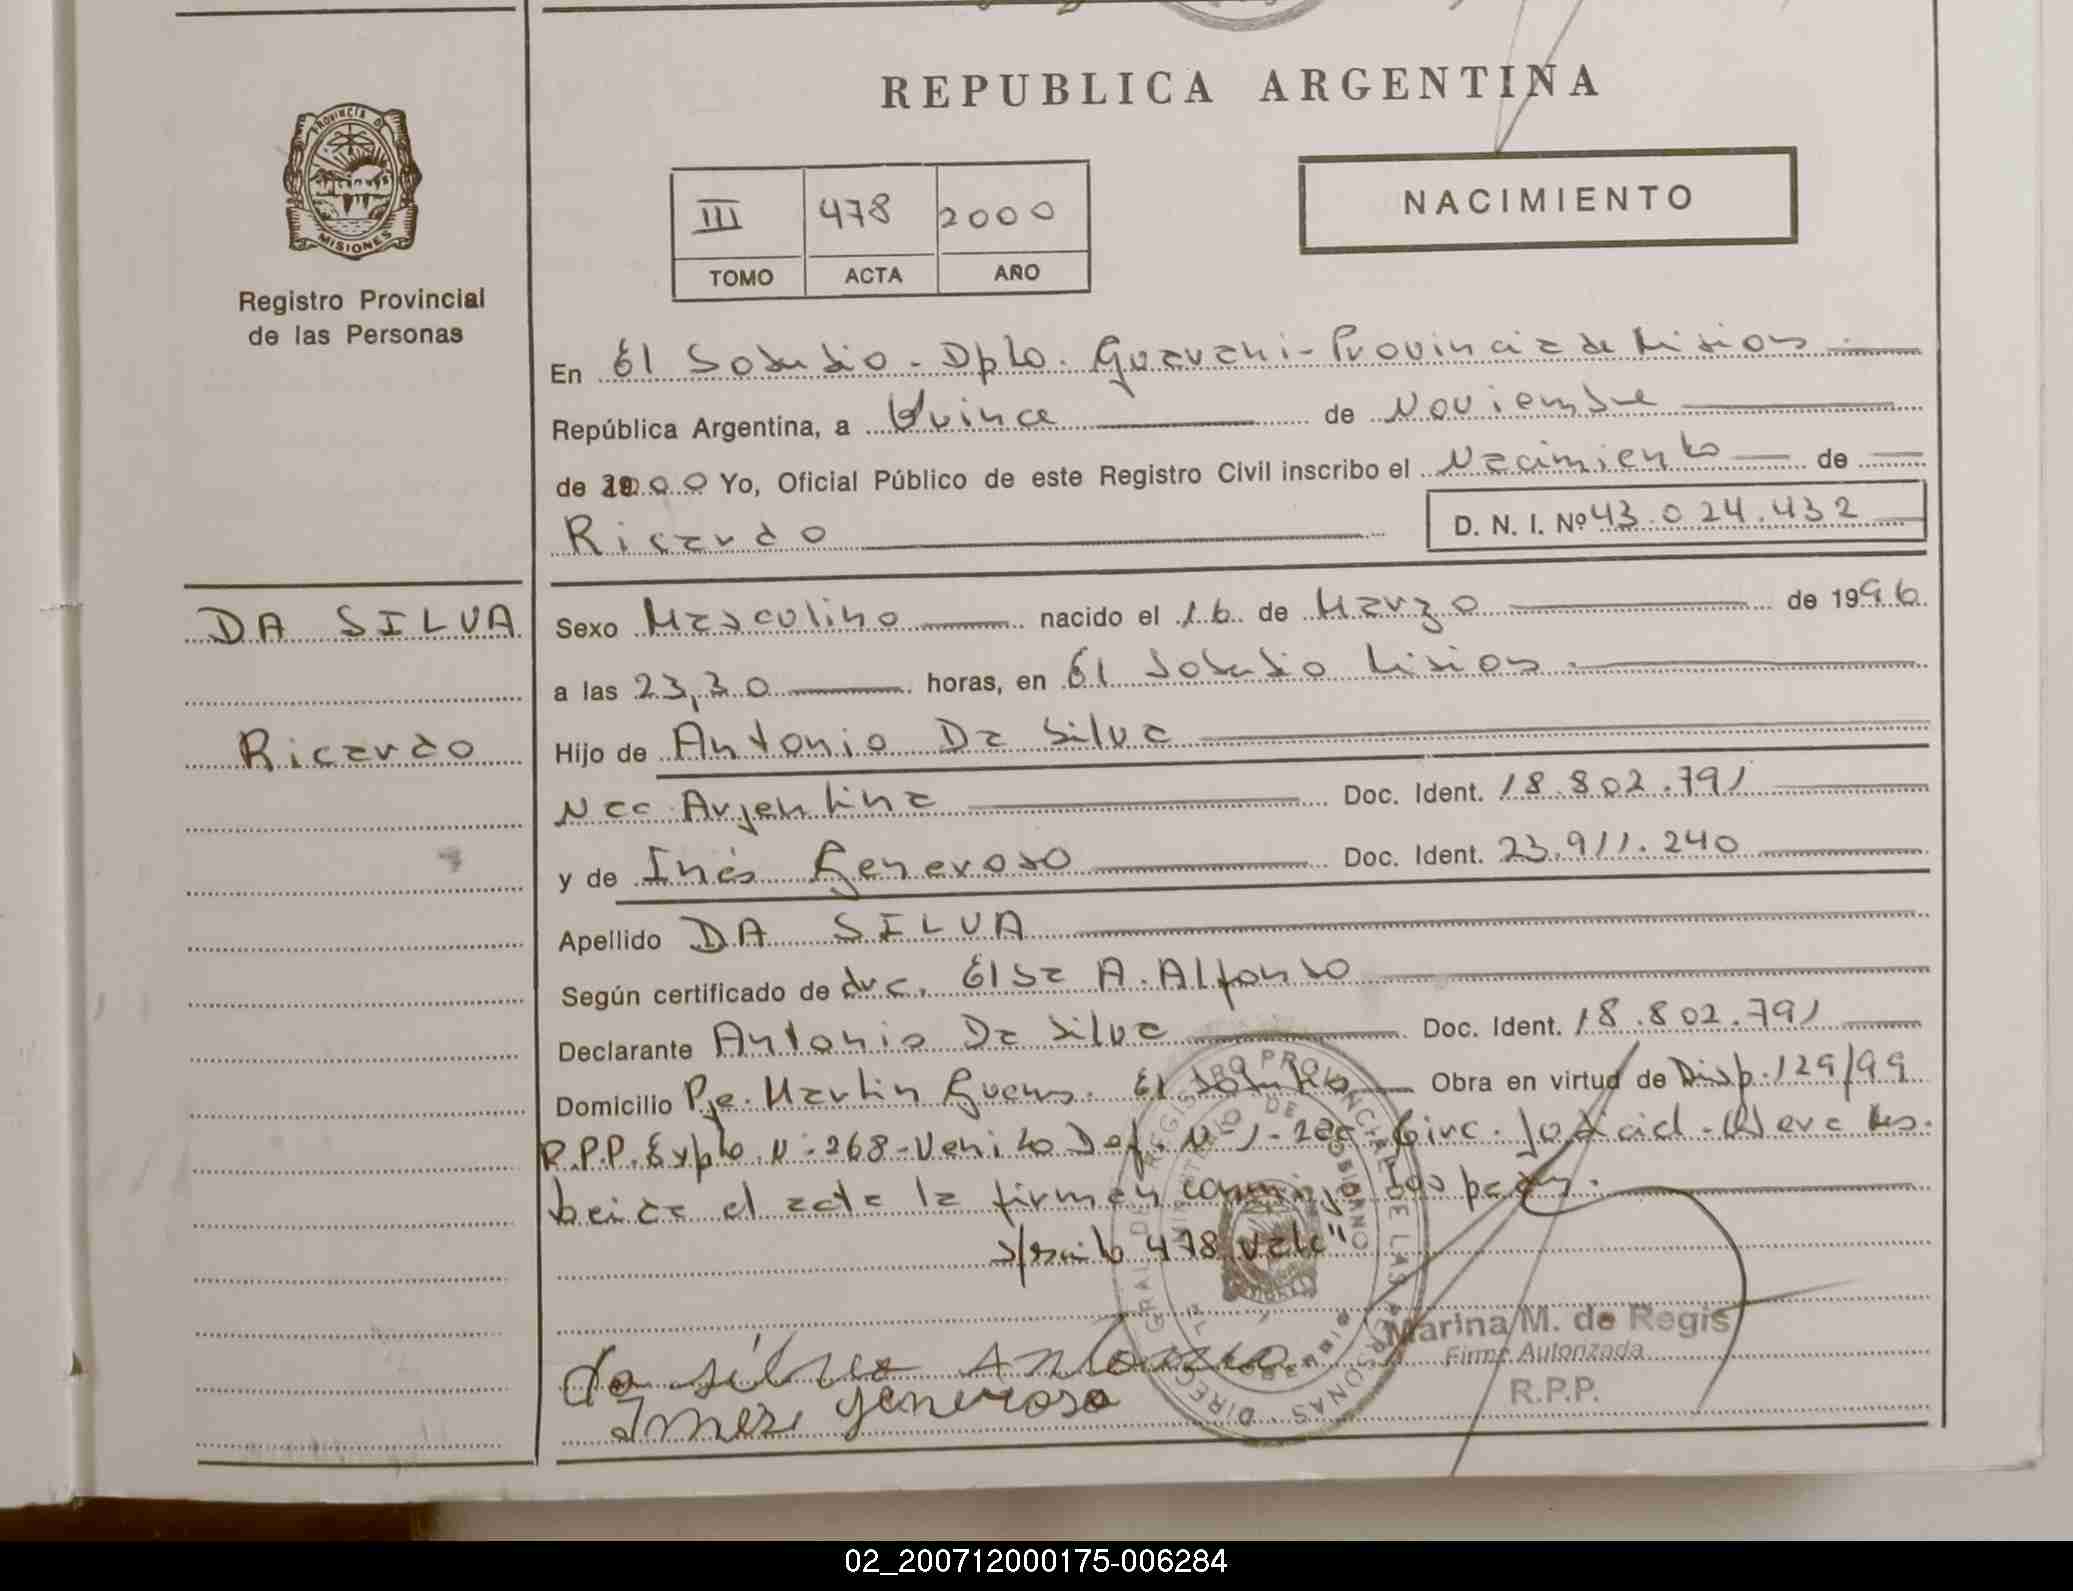 REPUBLICA ARGENTINA
PROVINCIA DE
MISIONES
Registro Provincial
de las Personas
III 478 2000
TOMO ACTA AÑO
NACIMIENTO
En El Soberbio - Dpto. Guarani - Provincia de Misiones
República Argentina, a Quince de Noviembre
de 2000 Yo, Oficial Público de este Registro Civil inscribo el Nacimiento de
Ricardo
D. N. I. Nº 43.024.432
DA SILVA
Ricardo
Sexo Masculino nacido el 16 de Marzo de 1996
a las 23,30 horas, en El Soberbio Misiones
Hijo de Antonio Da Silva
Nac. Argentina Doc. Ident. 18.802.791
y de Inés Generoso Doc. Ident. 23.911.240
Apellido DA SILVA
Según certificado de Elsa A. Alfonso
Declarante Antonio Da Silva Doc. Ident. 18.802.791
Domicilio Pje. Martin Guems. El Soberbio Obra en virtud de Disp. 129/99
R.P.P. Expte. N: 268 - Def. N-1- Circ. Judicial -
el acta la firman conmigo los padres.
478 vale"
da silva Antonio
generoso
Marina M. de Regis
Firma Autorizada
R.P.P.
02_200712000175-006284